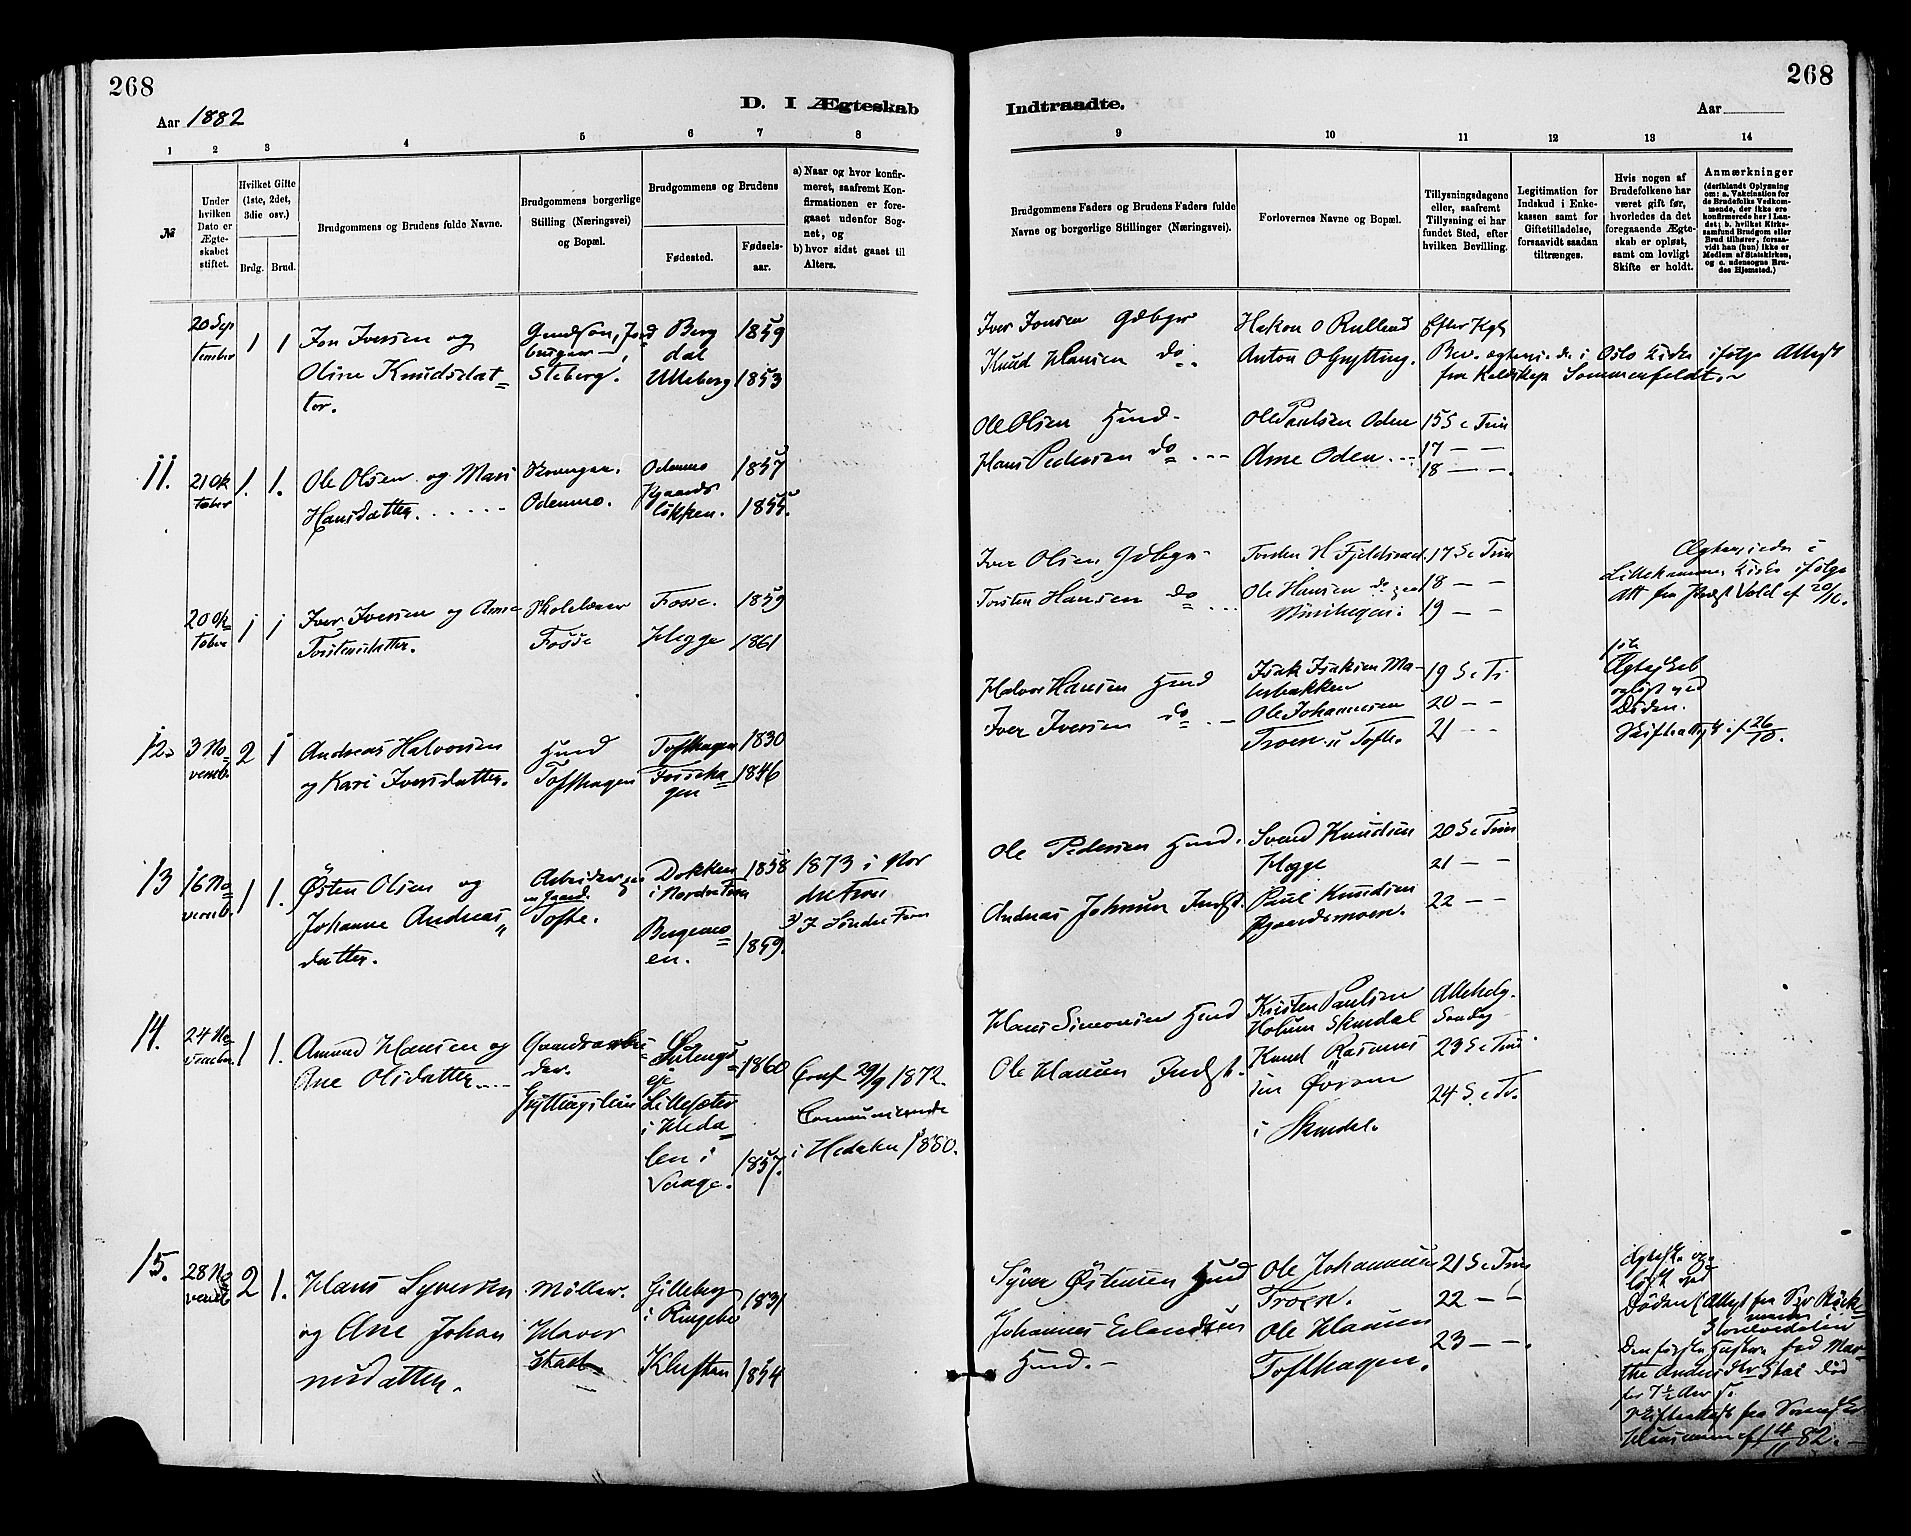 268
Aar 1882
D. I Ægteskab
1 2 3 4 5 6 7 8
№
Under hvilken Dato er Ægteskabet stiftet.
Hvilket Gifte (1ste, 2det, 3die osv.)
Brdg. Brud.
Brudgommens og Brudens fulde Navne.
Brudgommens borgerlige Stilling (Næringsvei) og Bopæl.
Brudgommens og Brudens
Fødested.
Fødselsaar.
a) Naar og hvor konfirmeret, saafremt Konfirmationen er foregaaet udenfor Sognet, og
b) hvor sidst gaaet til Alters.
20 September 1 1
Jon Iversen og
Oline Knudsdatter.
Steberg.
Bergdal 1859
Ulleberg 1853
11. 21 Oktober 1. 1.
Ole Olsen og Mari
Hansdatter.
Odenmo.
Odenmo 1857
1855.
20 Oktober 1 1
Iver Iversen og Anne
Torstensdatter.
Skolelærer
Fosse
Fosse. 1859
Hegge 1861
12. 3 Novemb. 2 1
Andreas Halvorsen
og Kari Iversdatter.
Hmd
Tofthagen
Tofthagen 1830
Fossehagen 1846
13 16 Novemb. 1 1.
Østen Olsen og
Johanne Andreasdatter.
Arbeider
Tofte.
Dokken 1858
i Nordre Fron
Bergemoen. 1859.
1873 i Nordre Fron.
I Søndre Fron
14. 24 November 1 1.
Amund Hansen og
Ane Olsdatter
Gaardsarbeider.
Gryttingsleien
1860
Lillesæter
i Hedalen i
Vaage. 1857.
Conf 29/9 1872.
Communicerede
i Hedalen 1880.
15. 28 Novemb 2 1.
Hans Syversen
og Ane Johannesdatter.
Møller.
Gilleberg
i Ringebu 1831
Kluften 1854
268
Indtraadte.
Aar
9 10 11 12 13 14
Brudgommens Faders og Brudens Faders fulde Navne og borgerlige Stillinger (Næringsvei).
Forlovernes Navne og Bopæl.
Tillysningsdagene eller, saafremt Tillysning ei har fundet Sted, efter hvilken Bevilling.
Legitimation for Indskud i Enkekassen samt for Giftetilladelse, forsaavidt saadan tiltrænges.
Hvis nogen af Brudefolkene har været gift før, hvorledes da det foregaaende Ægteskab er opløst, samt om lovligt Skifte er holdt.
Anmærkninger
(deriblandt Oplysning om: a. Vakcination for de Brudefolks Vedkommende, der ikke ere konfirmerede her i Landet; b. hvilket Kirkesamfund Brudgom eller Brud tilhører, forsaavidt han (hun) ikke er Medlem af Statskirken, og c. udensogns Brudes Hjemsted.)
Iver Jonsen Gdbgr
Knud Hansen do
Hakon O Rullend
Anton O Grytting.
Efter Kgl
Bev. i Oslo Kirke ifølge Attest
fra Sommerfeldt
Ole Olsen Hmd.
Hans Pedersen do
Ole Paulsen Oden
Arne Oden
15 S e Trin
17 — —
18 — —.
Iver Olsen Gdbgr
Torsten Hansen do
Torsten H Fjeldstad.
Ole Hansen do
17 S e Trin
18 — —
19 — —
Ægteviede i
Lillehammer Kirke ifølge
Att fra Vold af 20/10.
Halvor Hansen Hmd
Iver Iversen do
Isak Isaksen
Ole Johannesen
Troen u Tofte.
19 S e Tr
20 — —
21 — —
Ægteskab
opløst ved
Døden.
Skifteattest af 26/10.
Ole Pedersen Hmd.
Andreas Johnsen Indst.
Svend Knudsen
Hegge
Paul Knudsen
20 S e Trin
21 — —
22 — —
Hans Simonsen Hmd
Ole Hansen Indst.
Kristen Paulsen
Holum Skurdal
Knud Rasmussen Øvren
i Skurdal.
Allehelg.
Søndag
23 S e Trin
24 S. e Tr.
Syver Østensen Hmd
Johannes Erlandsen
Hmd.
Ole Johannesen
Troen.
Ole Hansen
Tofthagen.
21 S e Trin
22 — —
23 — —.
Ægtesk. opløst ved
Døden
Attest fra
Storelvedalen
for 7½ Aar